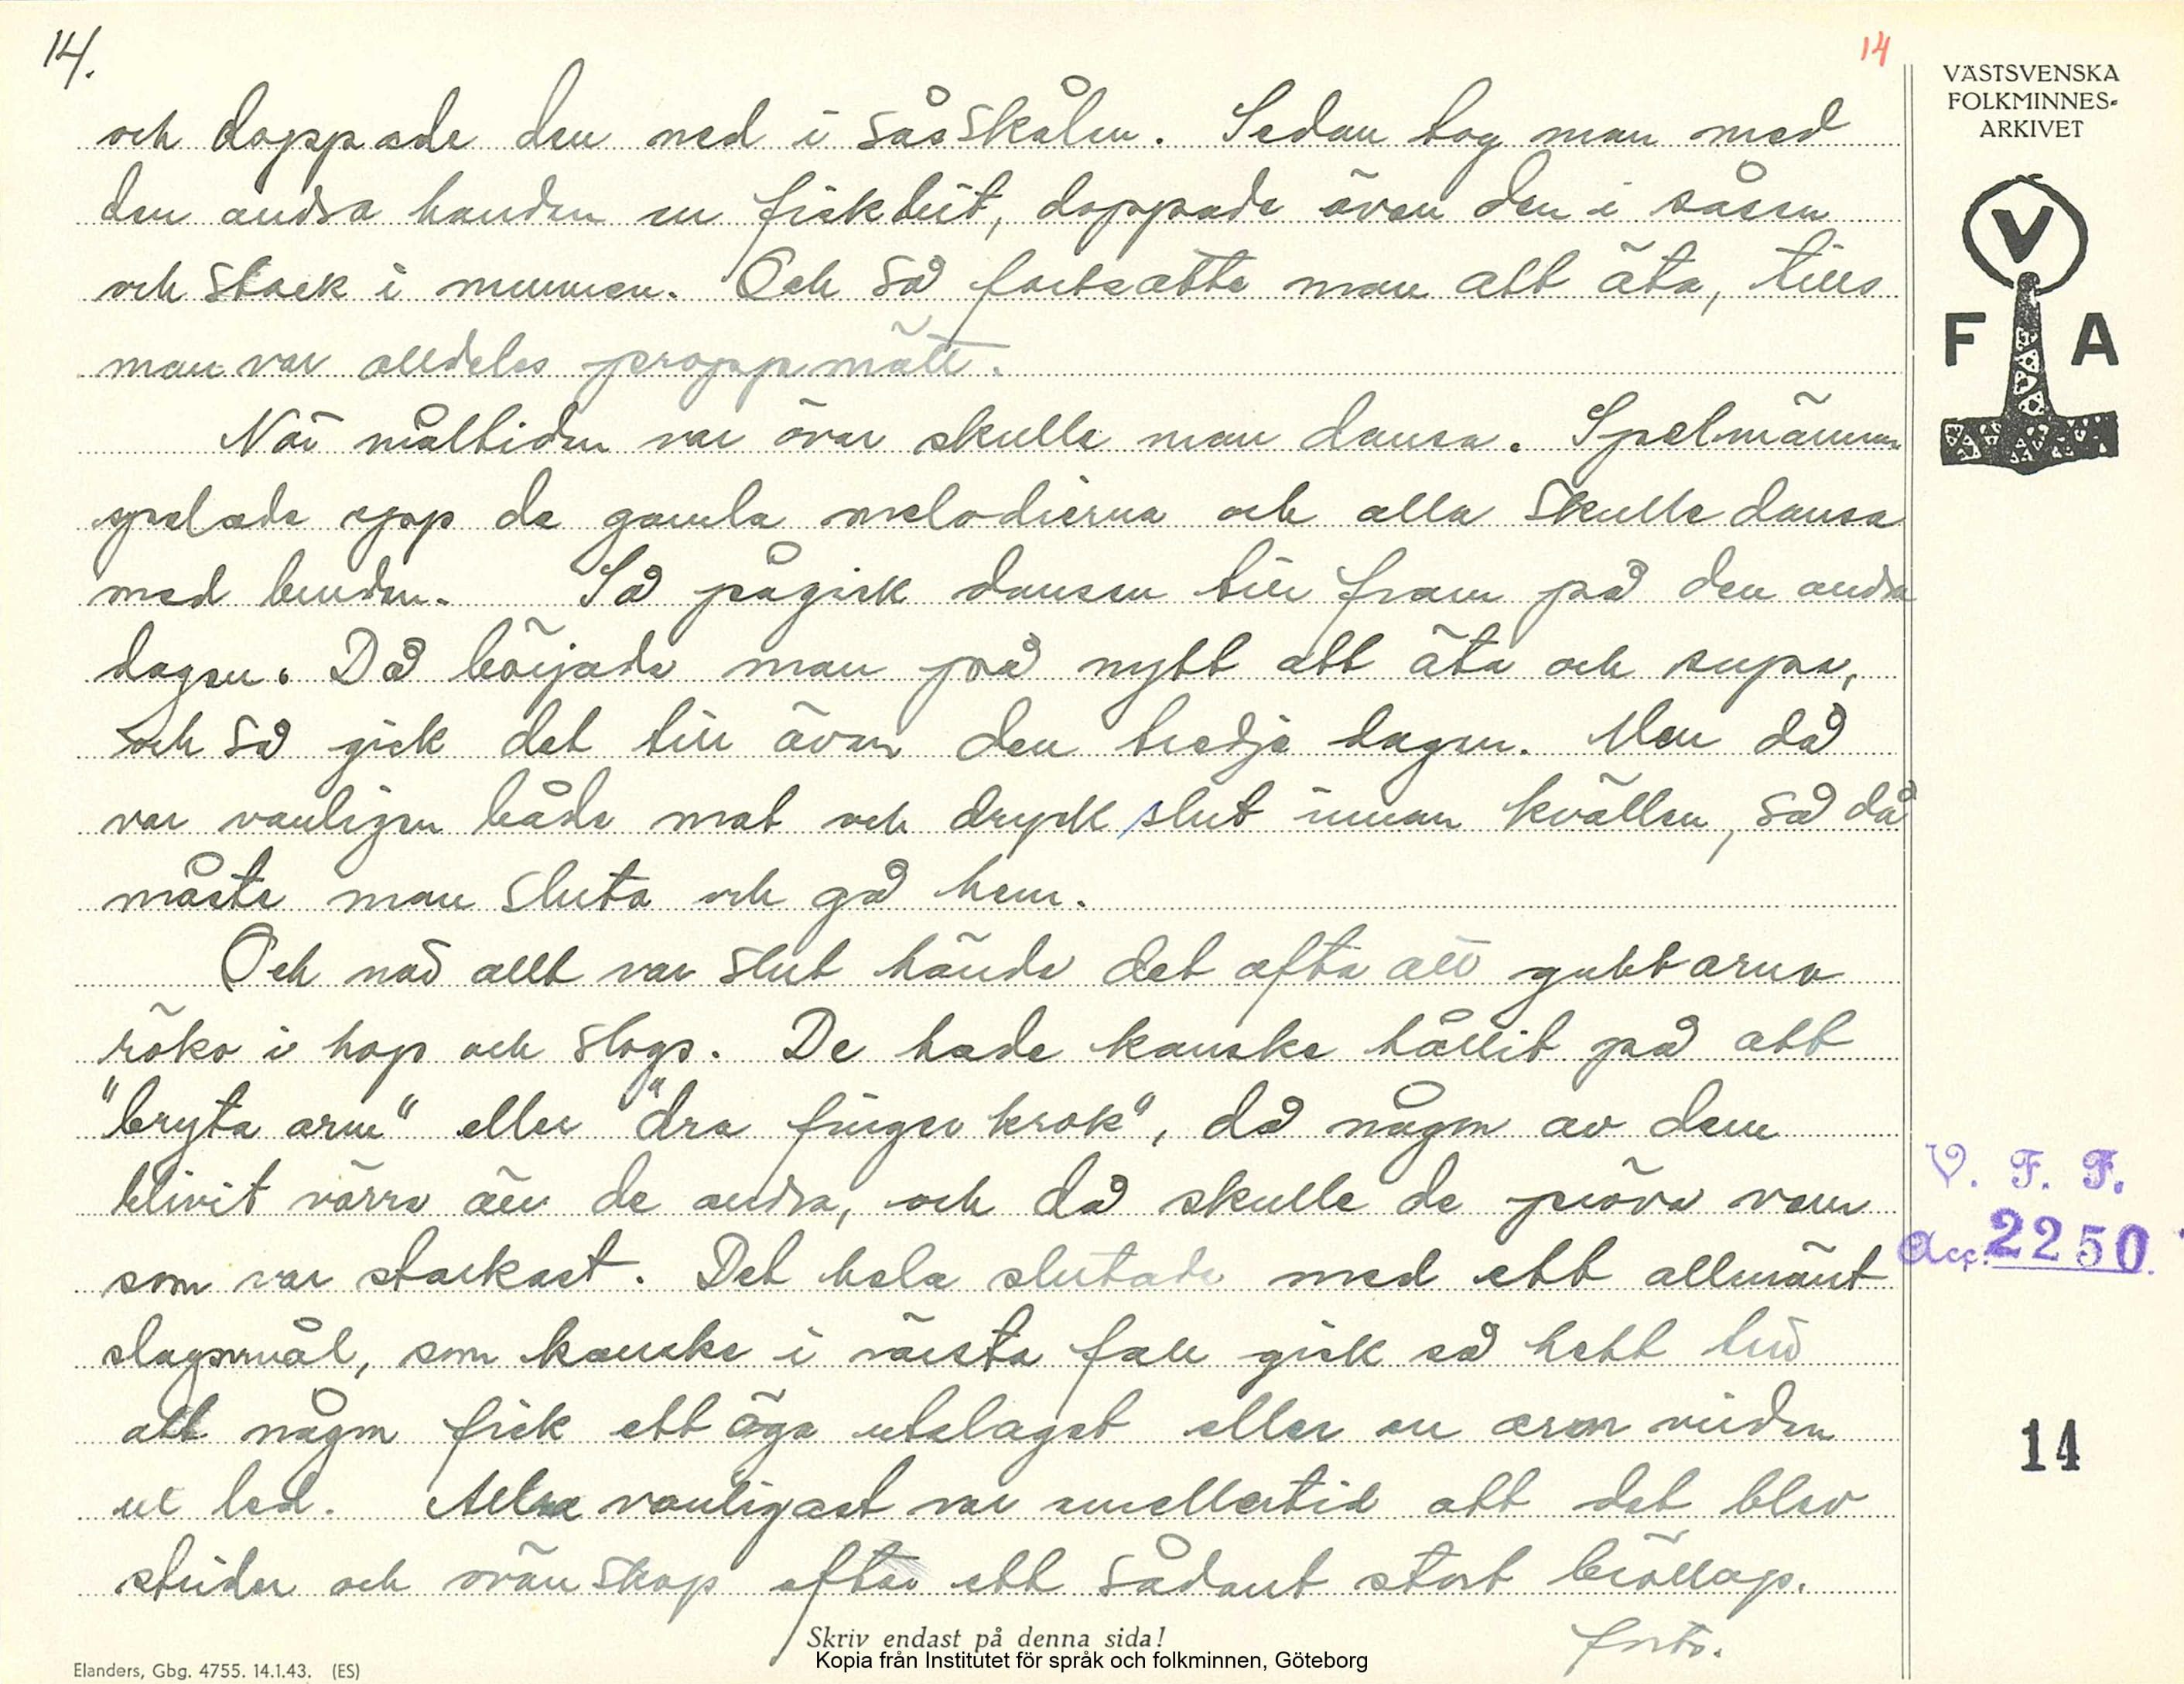 14.
14
VÄSTSVENSKA
FOLKMINNES-
ARKIVET
V
F A
och doppade den ned i såsskålen. Sedan tog man med
den andra handen en fiskbit, doppade även den i såsen
och stack i munnen. Och så fortsatte man att äta, tills
man var alldeles proppmätt.
När måltiden var över skulle man dansa. Spelmännen
spelade upp de gamla melodierna och alla skulle dansa
med bruden. Så pågick dansen till fram på den andra
dagen. Då började man på nytt att äta och supa,
och så gick det till även den tredje dagen. Men då
var vanligen både mat och dryck slut innan kvällen, så då
måste man sluta och gå hem.
Och när allt var slut hände det ofta att gubbarna
röko i hop och slogs. De hade kanske hållit på att
"bryta arm" eller "dra finger krok", då någon av dem
blivit värre än de andra, och då skulle de pröva vem
som var starkast. Det hela slutade med ett allmänt
slagsmål, som kanske i värsta fall gick så hett till
att någon fick ett öga utslaget eller en arm vriden
ur led. Allra vanligast var emellertid att det blev
strider och ovänskap efter ett sådant stort bröllop.
forts.
V. F. F.
Acc. 2250.
14
Skriv endast på denna sida!
Kopia från Institutet för språk och folkminnen, Göteborg
Elanders, Gbg. 4755. 14.1.43. (ES)